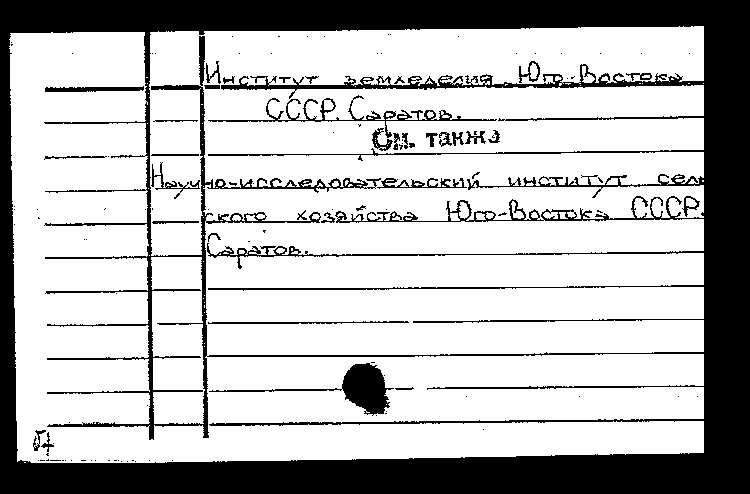 Институт земледелия Юго-Востока
СССР. Саратов.
См. также
Научно-исследовательский институт сель
ского хозяйства Юго-Востока СССР.
Саратов.